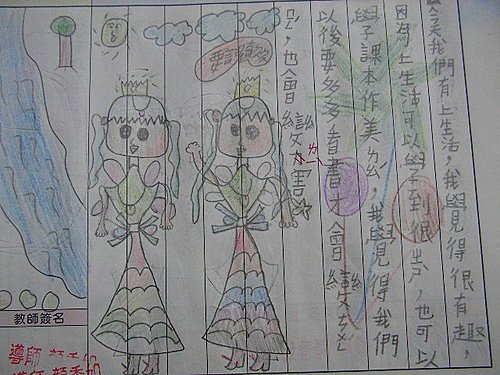 今天我們有上生活，我覺得很有趣，
因為上生活可以學到很，也可以
學 課本作美ㄌ，我覺得我們
以後要多多看書才會變
，也會變ㄌㄧ害
教師簽名
導師